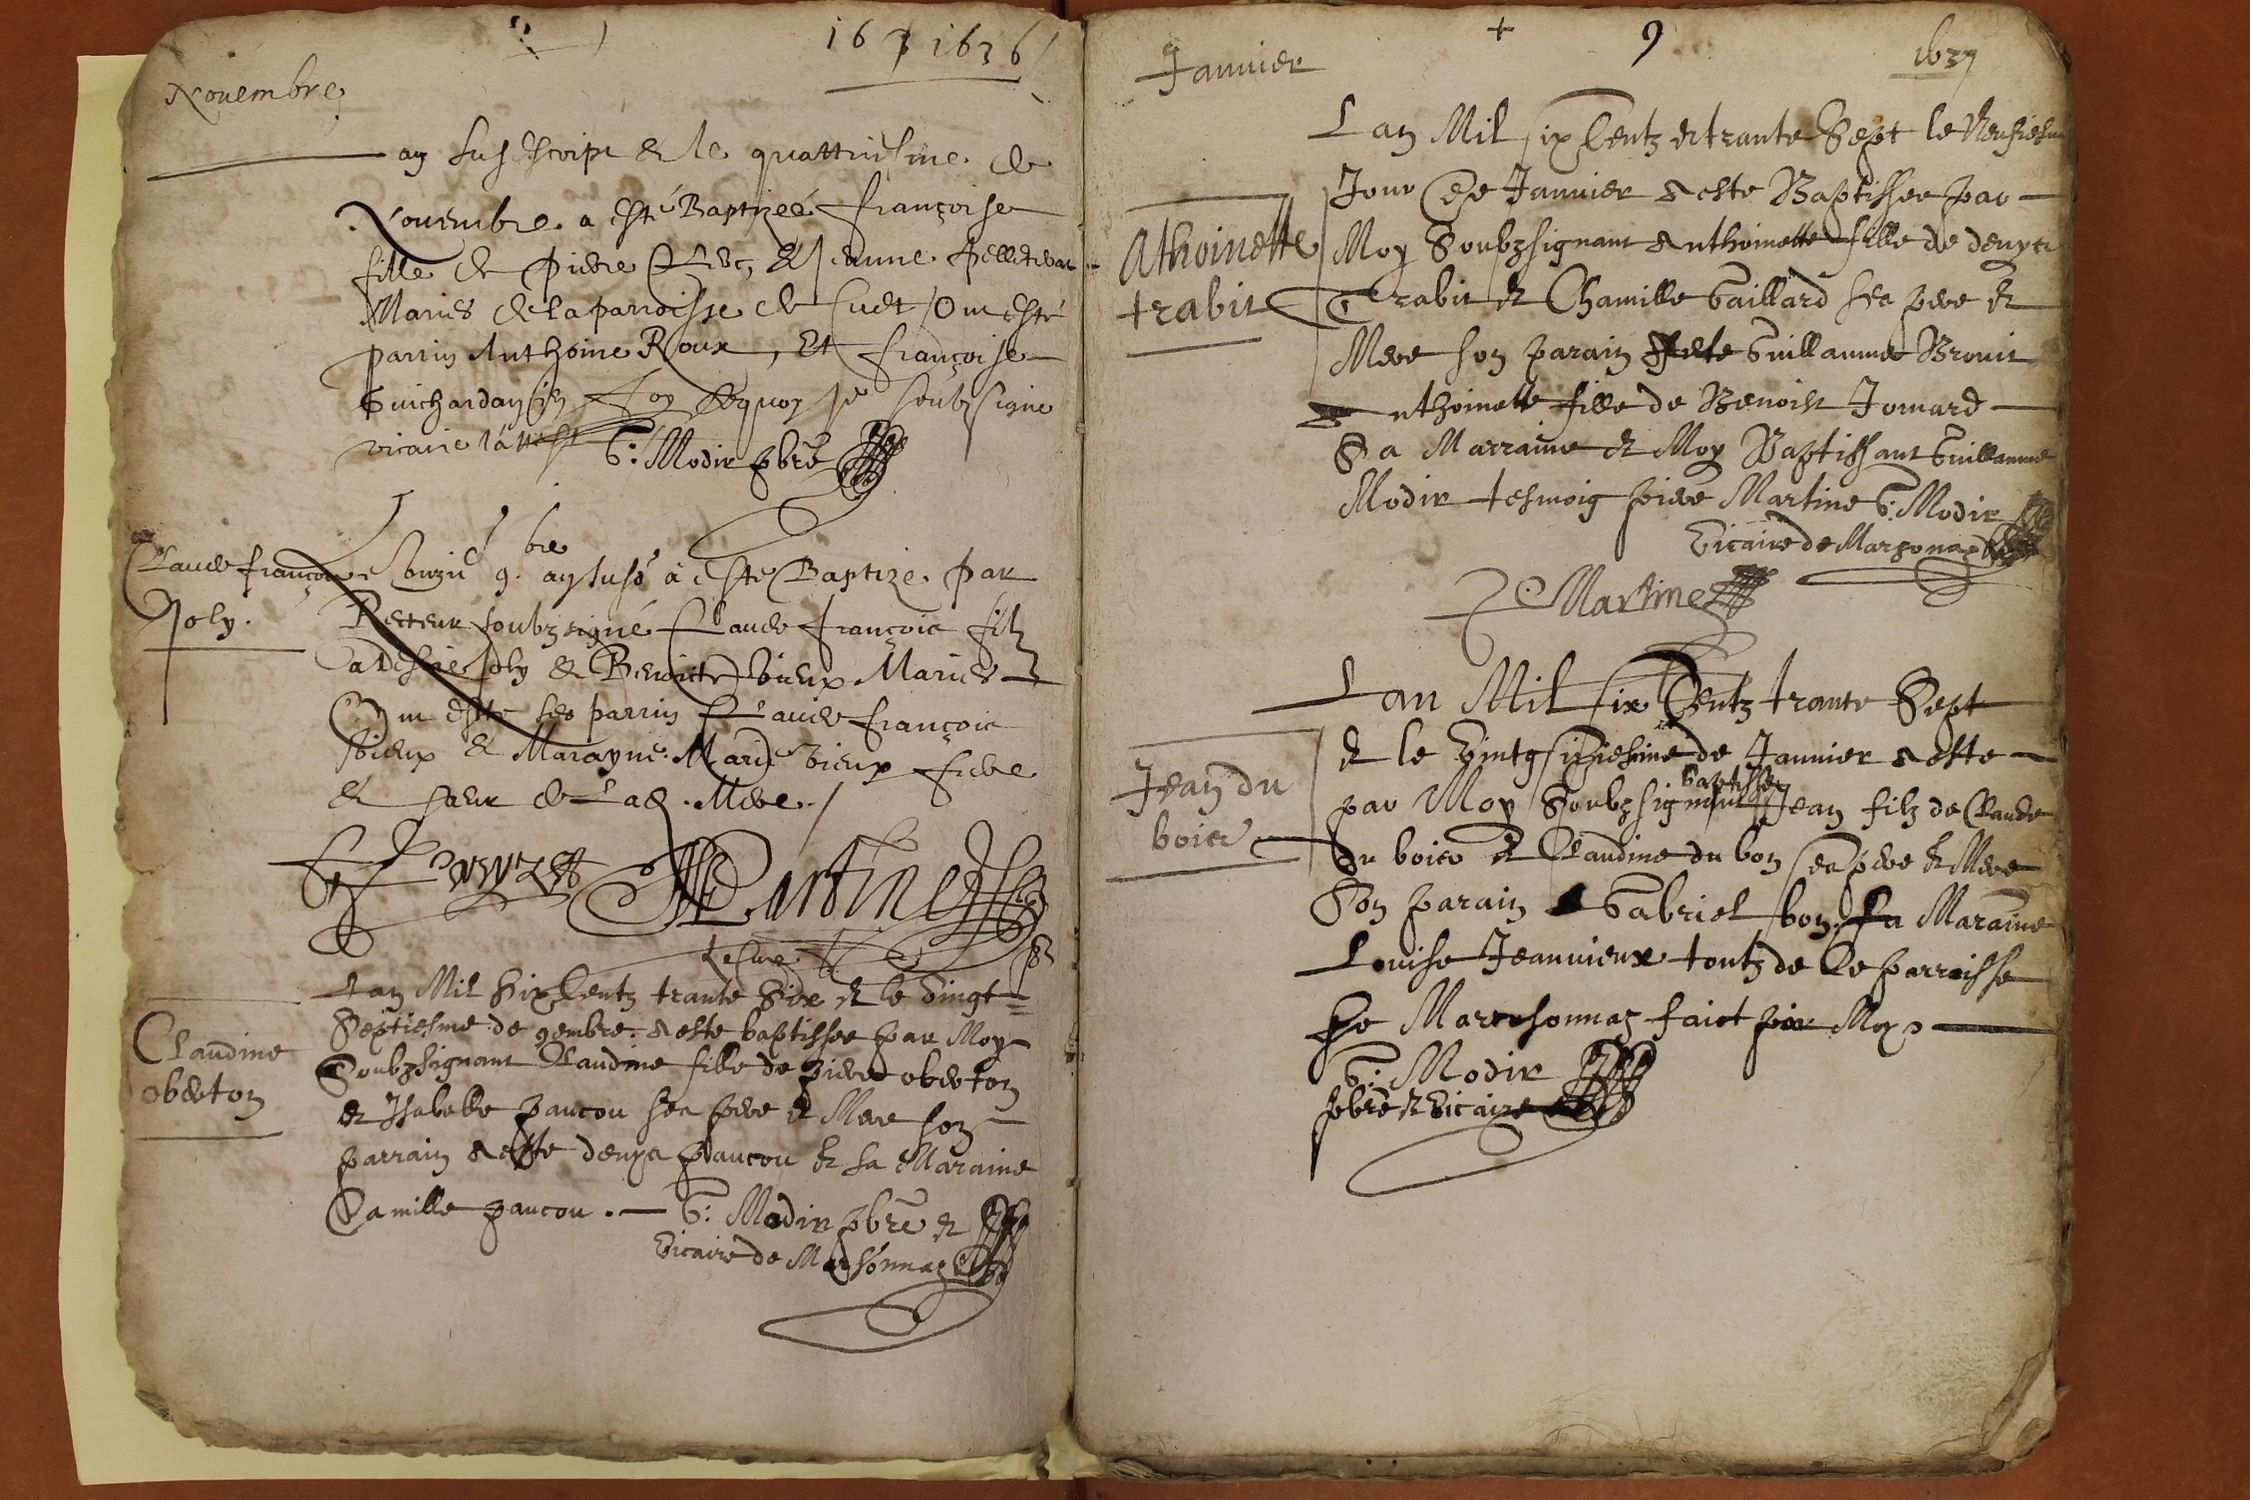 16 1636
Novembre
an susescript & le quattriesme de
Novembre a esté Baptizeé françoise
fille de Pierre & Jeanne
Maries de la parroisse de Cuet Ont esté
parrin Anthoine Roux, Et françoise
Guichardan En foy dequoy je soubsigne
vicaire l'atteste G: Modir pbre
Claude françois
Joly.
9.bre an suss a este Baptizé par
Recteur soubzsigné Claude françois filz
Joly & Benoiste vieux Maries
Ont este ses parrin Claude françois
vieux & Marayne Marie vieux frere
& saeur de Lad. Mere./
Martine
tesmoe
Claudine
oberton
Lan Mil Six Centz trante Six & le vingt
Septiesme de 9embre: a este baptissee par Moy
Soubzsignant Claudine fille de piere oberton
& Isabelle paucou ses pere & Mere son
parrain a este denys paucou & sa Maraine
Camille paucou. G: Modir pbre &
vicaire de Marsonnaz
Janvier
+ 9 1637
Athoinette
trabit
Lan Mil six Centz et trante Sept le Neufiesme
Jour de Janvier a este Baptissee par
Moy Soubzsignant Anthoinette fille de denys
Trabit & Chamille Gaillard ses pere &
Mere son parain Guillaume Brouit
Anthoinette fille de Benoist Jomard
Sa Marraine & Moy Baptissant Guillaume
Modir tesmoig piere Martine G: Modir
Vicaire de Marsonaz
Martine
Jean du
boies
Lan Mil six Centz trante Sept
& le vintg siziesme de Janvier a este
baptisse
par Moy Soubzsignant Jean filz de Claude
Du bois & Claudine du bon ses pere & Mere
Son parain Gabriel bon. Sa Maraine
Louise Jeanvieux toutz de le parroisse
De Marcsonnaz faict par Moy
G: Modir
pbre & vicaire